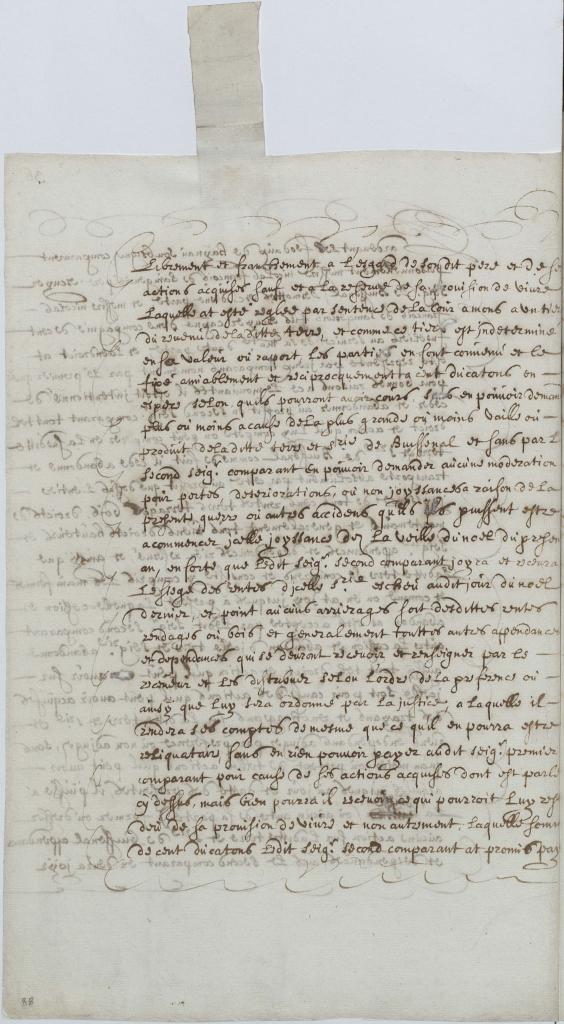 Librement et franchement a lesgard de sondit pere et de se
actions acquises sauf et a la reserve de sa provision de vivre
Laquelle at esté reglée par sentence de la Cour a mons a un tier
du revenu de laditte terre, et comme ce tiers est indeterminé
en sa valeur ou raport, les parties en sont convenu et le
fixé amiablement et reciprocquement a cent ducatons en
espece selon quils pourront avoir cours, sans en pouvoir deman
plus ou moins a cause de la plus grande ou moins vaille ou
produit de laditte terre et srie de Buissenal et sans par l
second seigr. comparant en pouvoir demander aucune moderation
pour pertes, deteriorations, ou non joyssances a raison de la
presente guerre ou autres accidens quels ils puissent estre
a commencer icelle joyssance dez la veille du noel du presen
an, en sorte que ledit seigr. second comparant joyra et recevra
Le siege des rentes dicelle srie escheu audit jour du noel
dernier, et point aucuns arrierages soit desdittes rentes
rendages ou bois, et generalement touttes autres appendances
et dependances qui se devront recevoir et renseigner par le
receveur et les distribuer selon lordre de la preference ou
ainsy que luy sera ordonné par la justice, a laquelle il
rendera ses comptes de mesme que ce quil en pourra estre
reliquatair sans en rien pouvoir payer audit seigr. premier
comparant pour cause de ses actions acquises dont est parlé
cy dessus, mais bien pourra il recevoir ce qui pourroit luy res
deu de sa provision de vivre et non autrement, laquelle somm
de cent ducatons ledit seigr. second comparant at promis pay
88